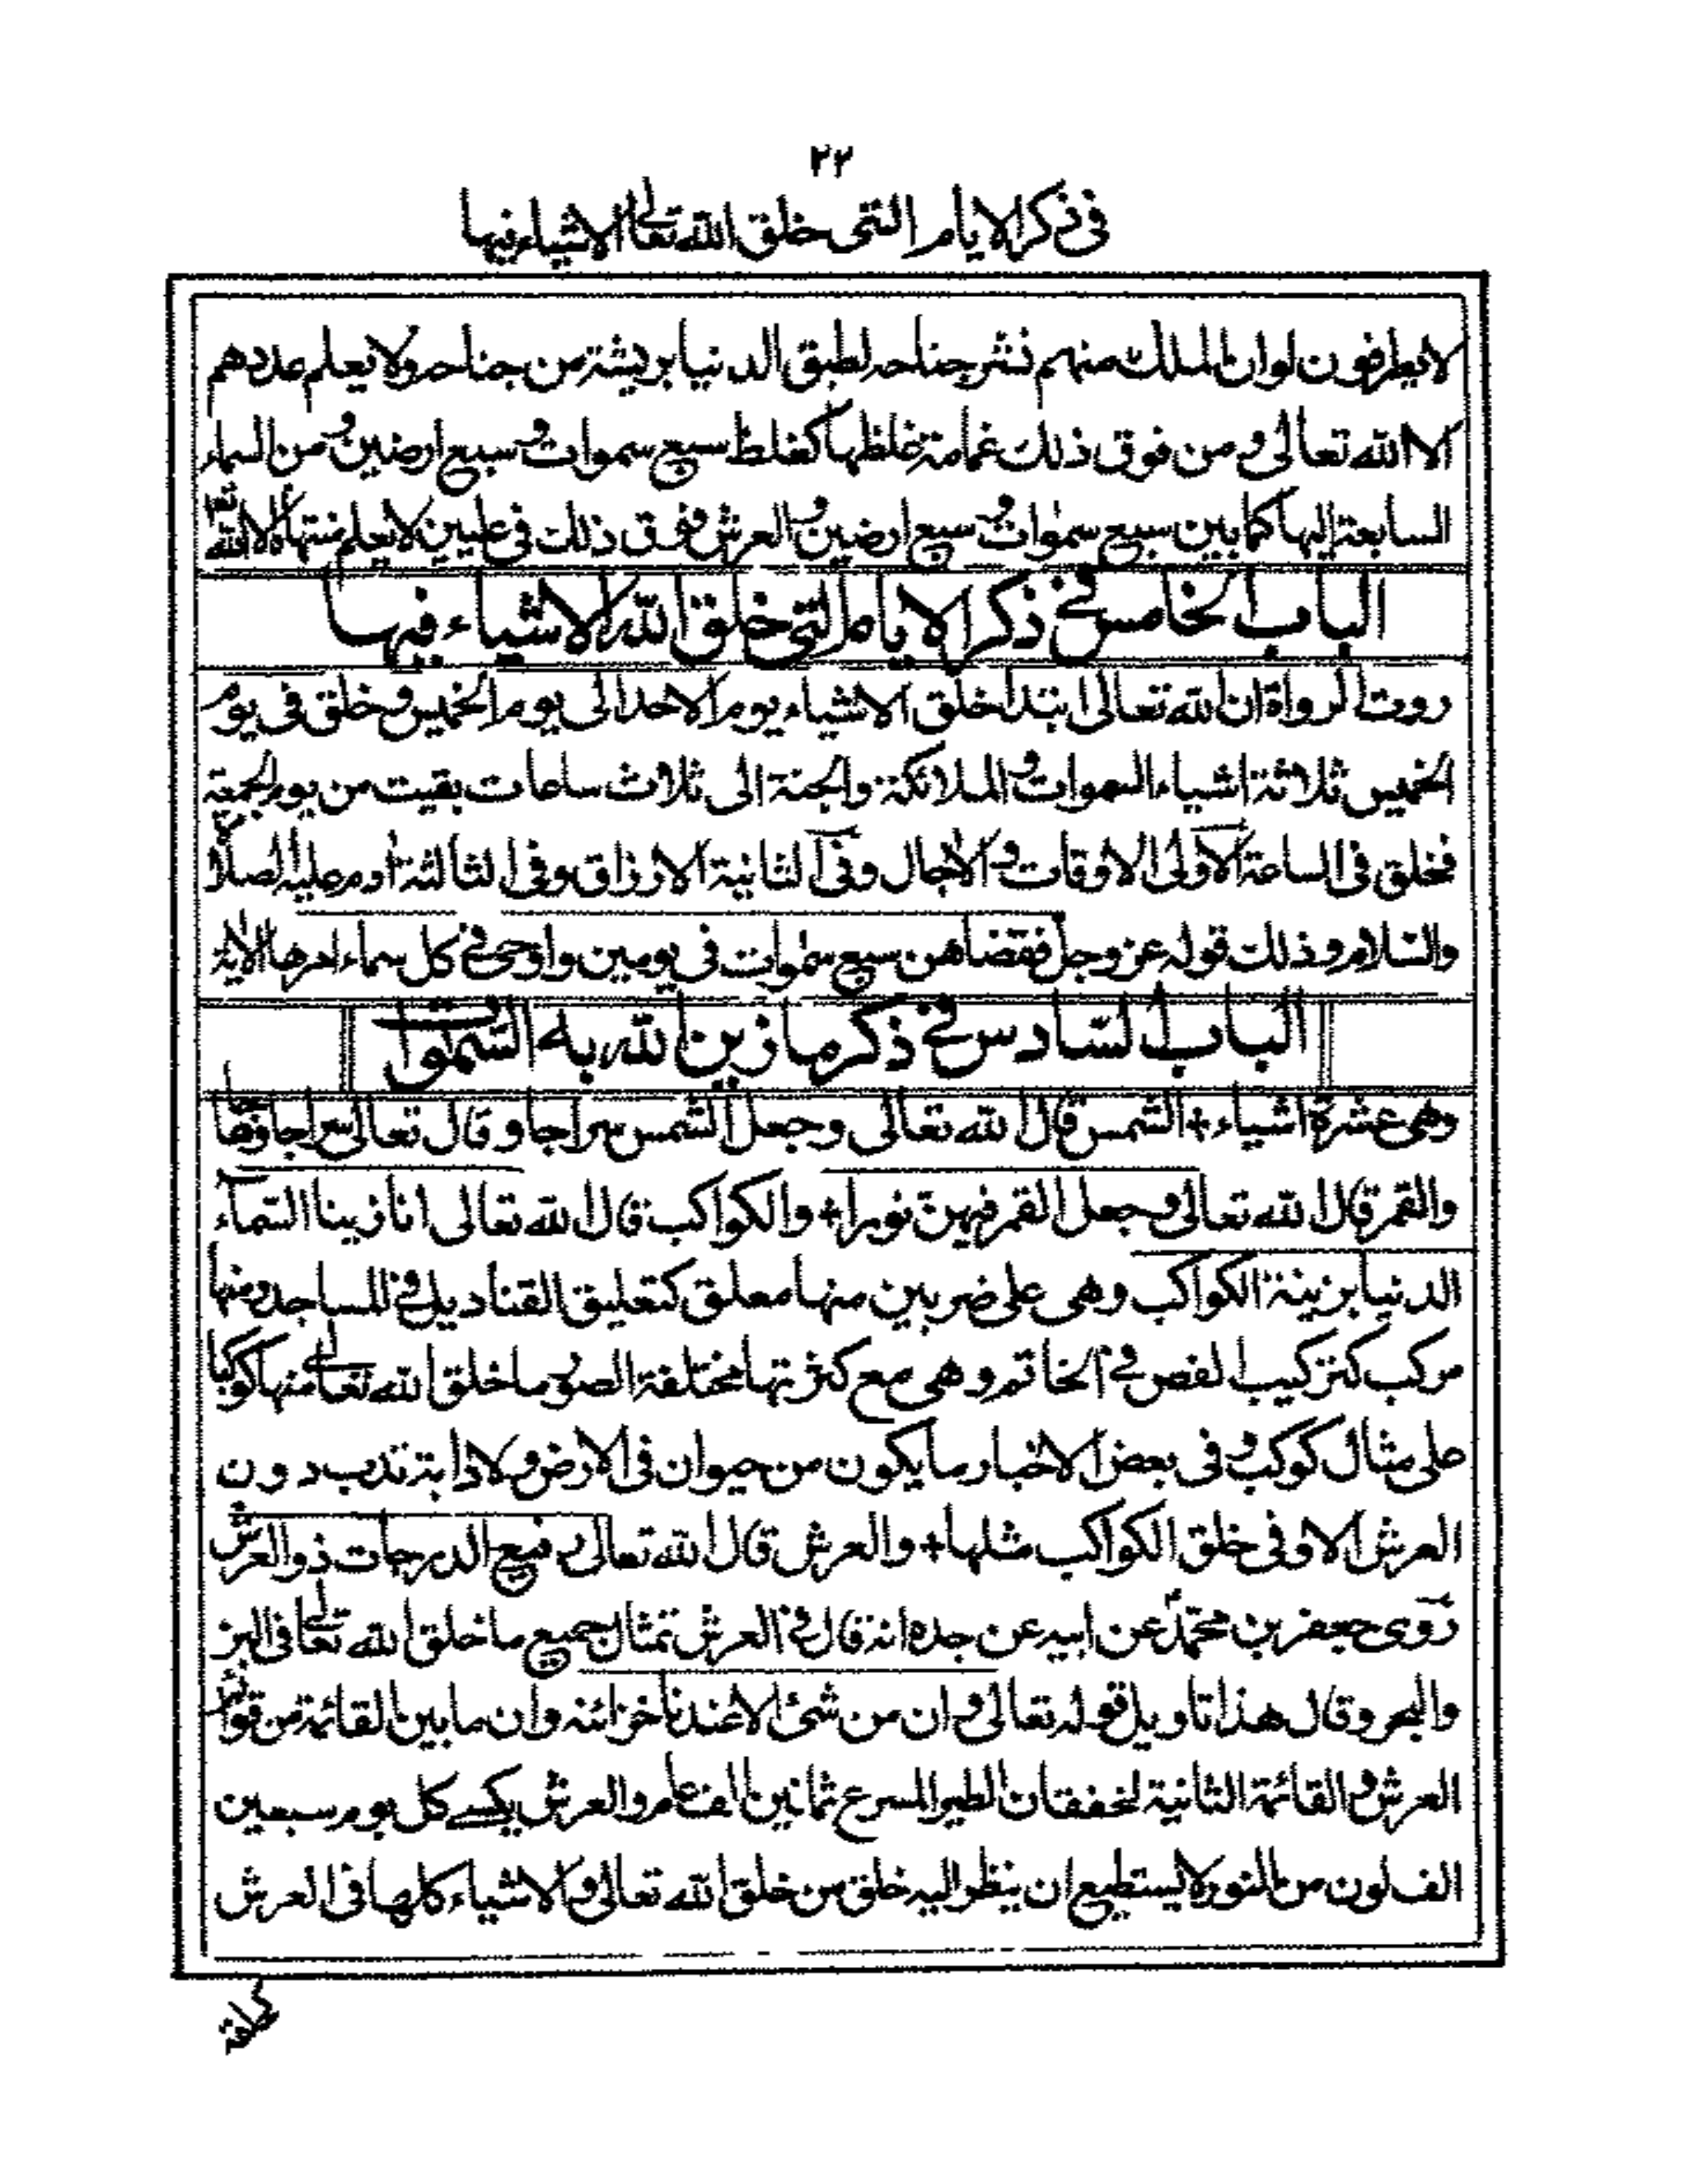 ٢٢
فى ذكر الايام التى خلق الله تعالى الاشياء فيها
لا يطرفون لو ان الملك منهم نشر جناحه لطبق الدنيا بريشة من جناحه ولا يعلم عددهم
الا الله تعالى ومن فوق ذلك غمامة غلظها كغلظ سبع سموات وسبع ارضين ومن السماء
السابعة اليها كما بين سبع سموات وسبع ارضين والعرش فوق ذلك فى عليين لا يعلم منتهاه الا الله تعا
الباب الخامس فى ذكر الايام التى خلق الله الاشياء فيها
روت الرواة ان الله تعالى ابتدا خلق الاشياء يوم الاحد الى يوم الخميس وخلق فى يوم
الخميس ثلاثة اشياء السموات والملائكة والجنة الى ثلاث ساعات بقيت من يوم الجمعة
فخلق فى الساعة الاولى الاوقات والاجال وفى الثانية الارزاق وفى الثالثة ادم عليه الصلاة
والسلام وذلك قوله عز وجل فقضاهن سبع سموات فى يومين واوحى فى كل سماء امرها الاية
الباب السادس فى ذكر ما زين الله به السموات
وهى عشرة اشياء + الشمس قال الله تعالى وجعل الشمس سراجا وقال تعالى سراجا وهاجا
والقمر قال الله تعالى وجعل القمر فيهن نورا + والكواكب قال الله تعالى انا زينا السماء
الدنيا بزينة الكواكب وهى على ضربين منها معلق كتعليق القناديل فى المساجد ومنها
مركب كتركيب الفص فى الخاتم وهى مع كثرتها مختلفة الصور ما خلق الله تعالى منها كوكبا
على مثال كوكب وفى بعض الاخبار ما يكون من حيوان فى الارض ولا دابة تدب دون
العرش الا وفى خلق الكواكب مثلها + والعرش قال الله تعالى رفيع الدرجات ذو العرش
روى جعفر بن محمد عن ابيه عن جده انه قال فى العرش تمثال جميع ما خلق الله تعالى فى البر
والبحر وقال هذا تاويل قوله تعالى وان من شئ الا عندنا خزائنه وان ما بين القائمة من قوائم
العرش والقائمة الثانية لخفقان الطير المسرع ثمانين الف عام والعرش يكسى كل يوم سبعين
الف لون من النور لا يستطيع ان ينظر اليه خلق من خلق الله تعالى والاشياء كلها فى العرش
كحلقة